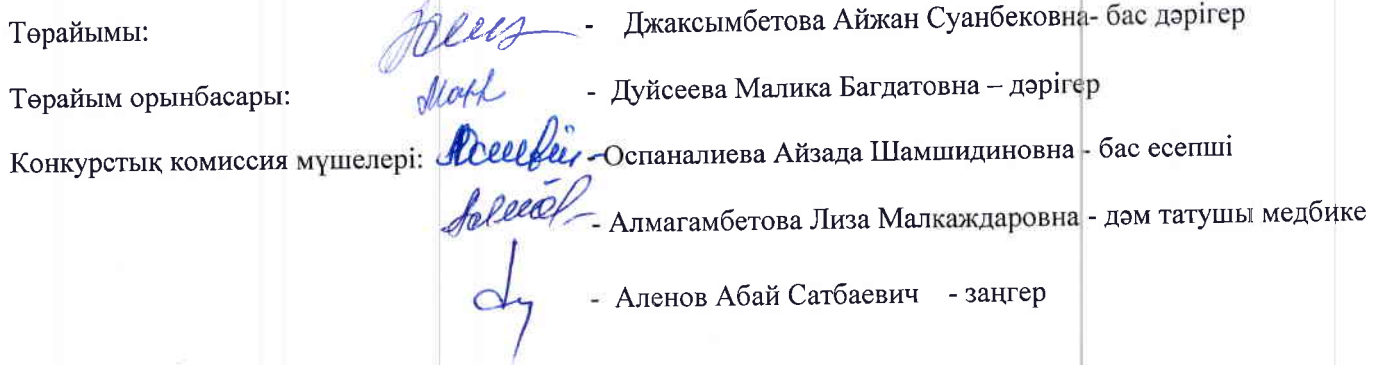 Төрайымы: - Джаксымбетова Айжан Суанбековна- бас дәрігер
Төрайым орынбасары: - Дуйсеева Малика Багдатовна – дәрігер
Конкурстық комиссия мүшелері: -Оспаналиева Айзада Шамшидиновна - бас есепші
- Алмагамбетова Лиза Малкаждаровна - дәм татушы медбике
- Аленов Абай Сатбаевич - заңгер